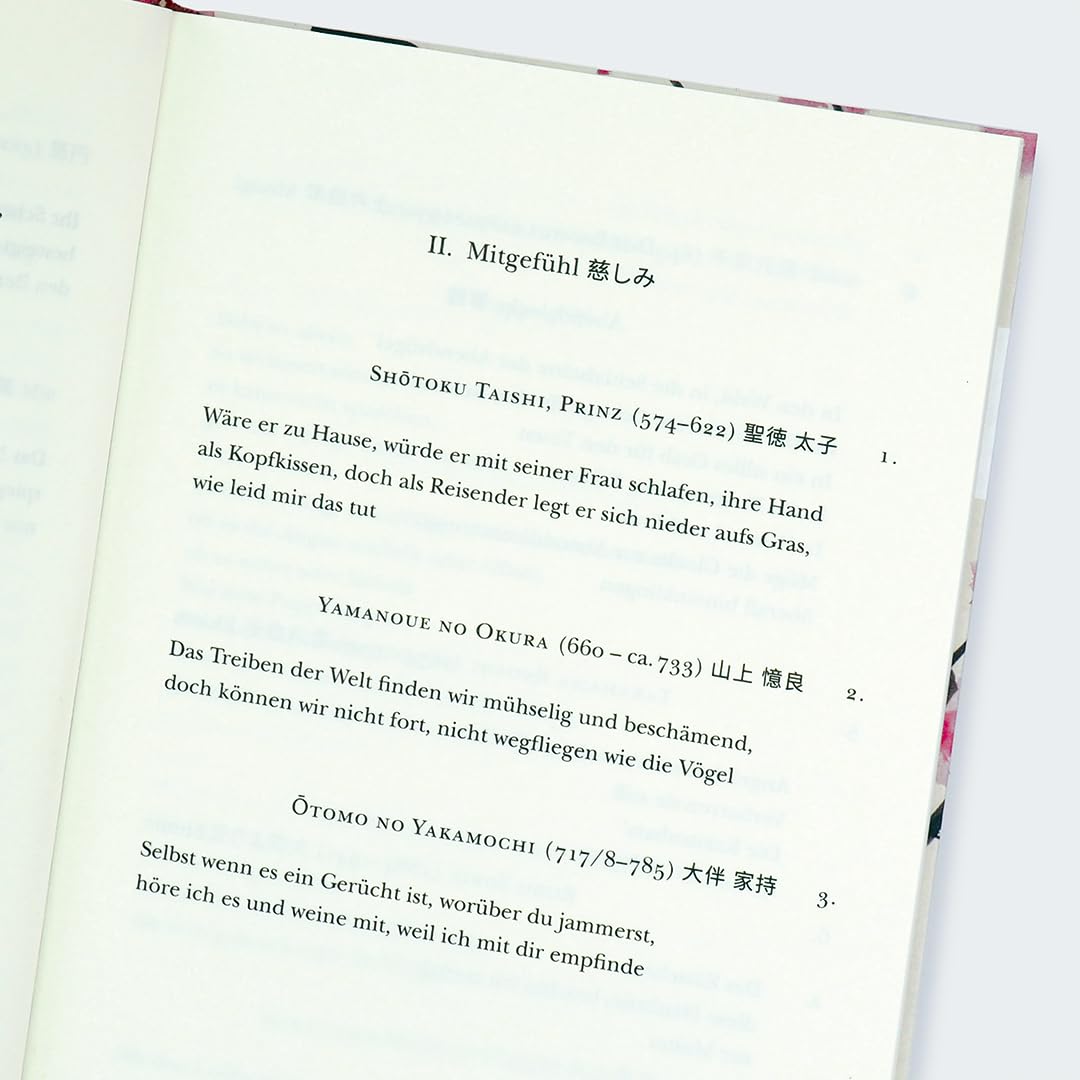 II. Mitgefühl 慈しみ
Shōtoku Taishi, Prinz (574–622) 聖徳 太子
1.
Wäre er zu Hause, würde er mit seiner Frau schlafen, ihre Hand
als Kopfkissen, doch als Reisender legt er sich nieder aufs Gras,
wie leid mir das tut
Yamanoue no Okura (660 – ca. 733) 山上 憶良
2.
Das Treiben der Welt finden wir mühselig und beschämend,
doch können wir nicht fort, nicht wegfliegen wie die Vögel
Ōtomo no Yakamochi (717/8–785) 大伴 家持
3.
Selbst wenn es ein Gerücht ist, worüber du jammerst,
höre ich es und weine mit, weil ich mit dir empfinde